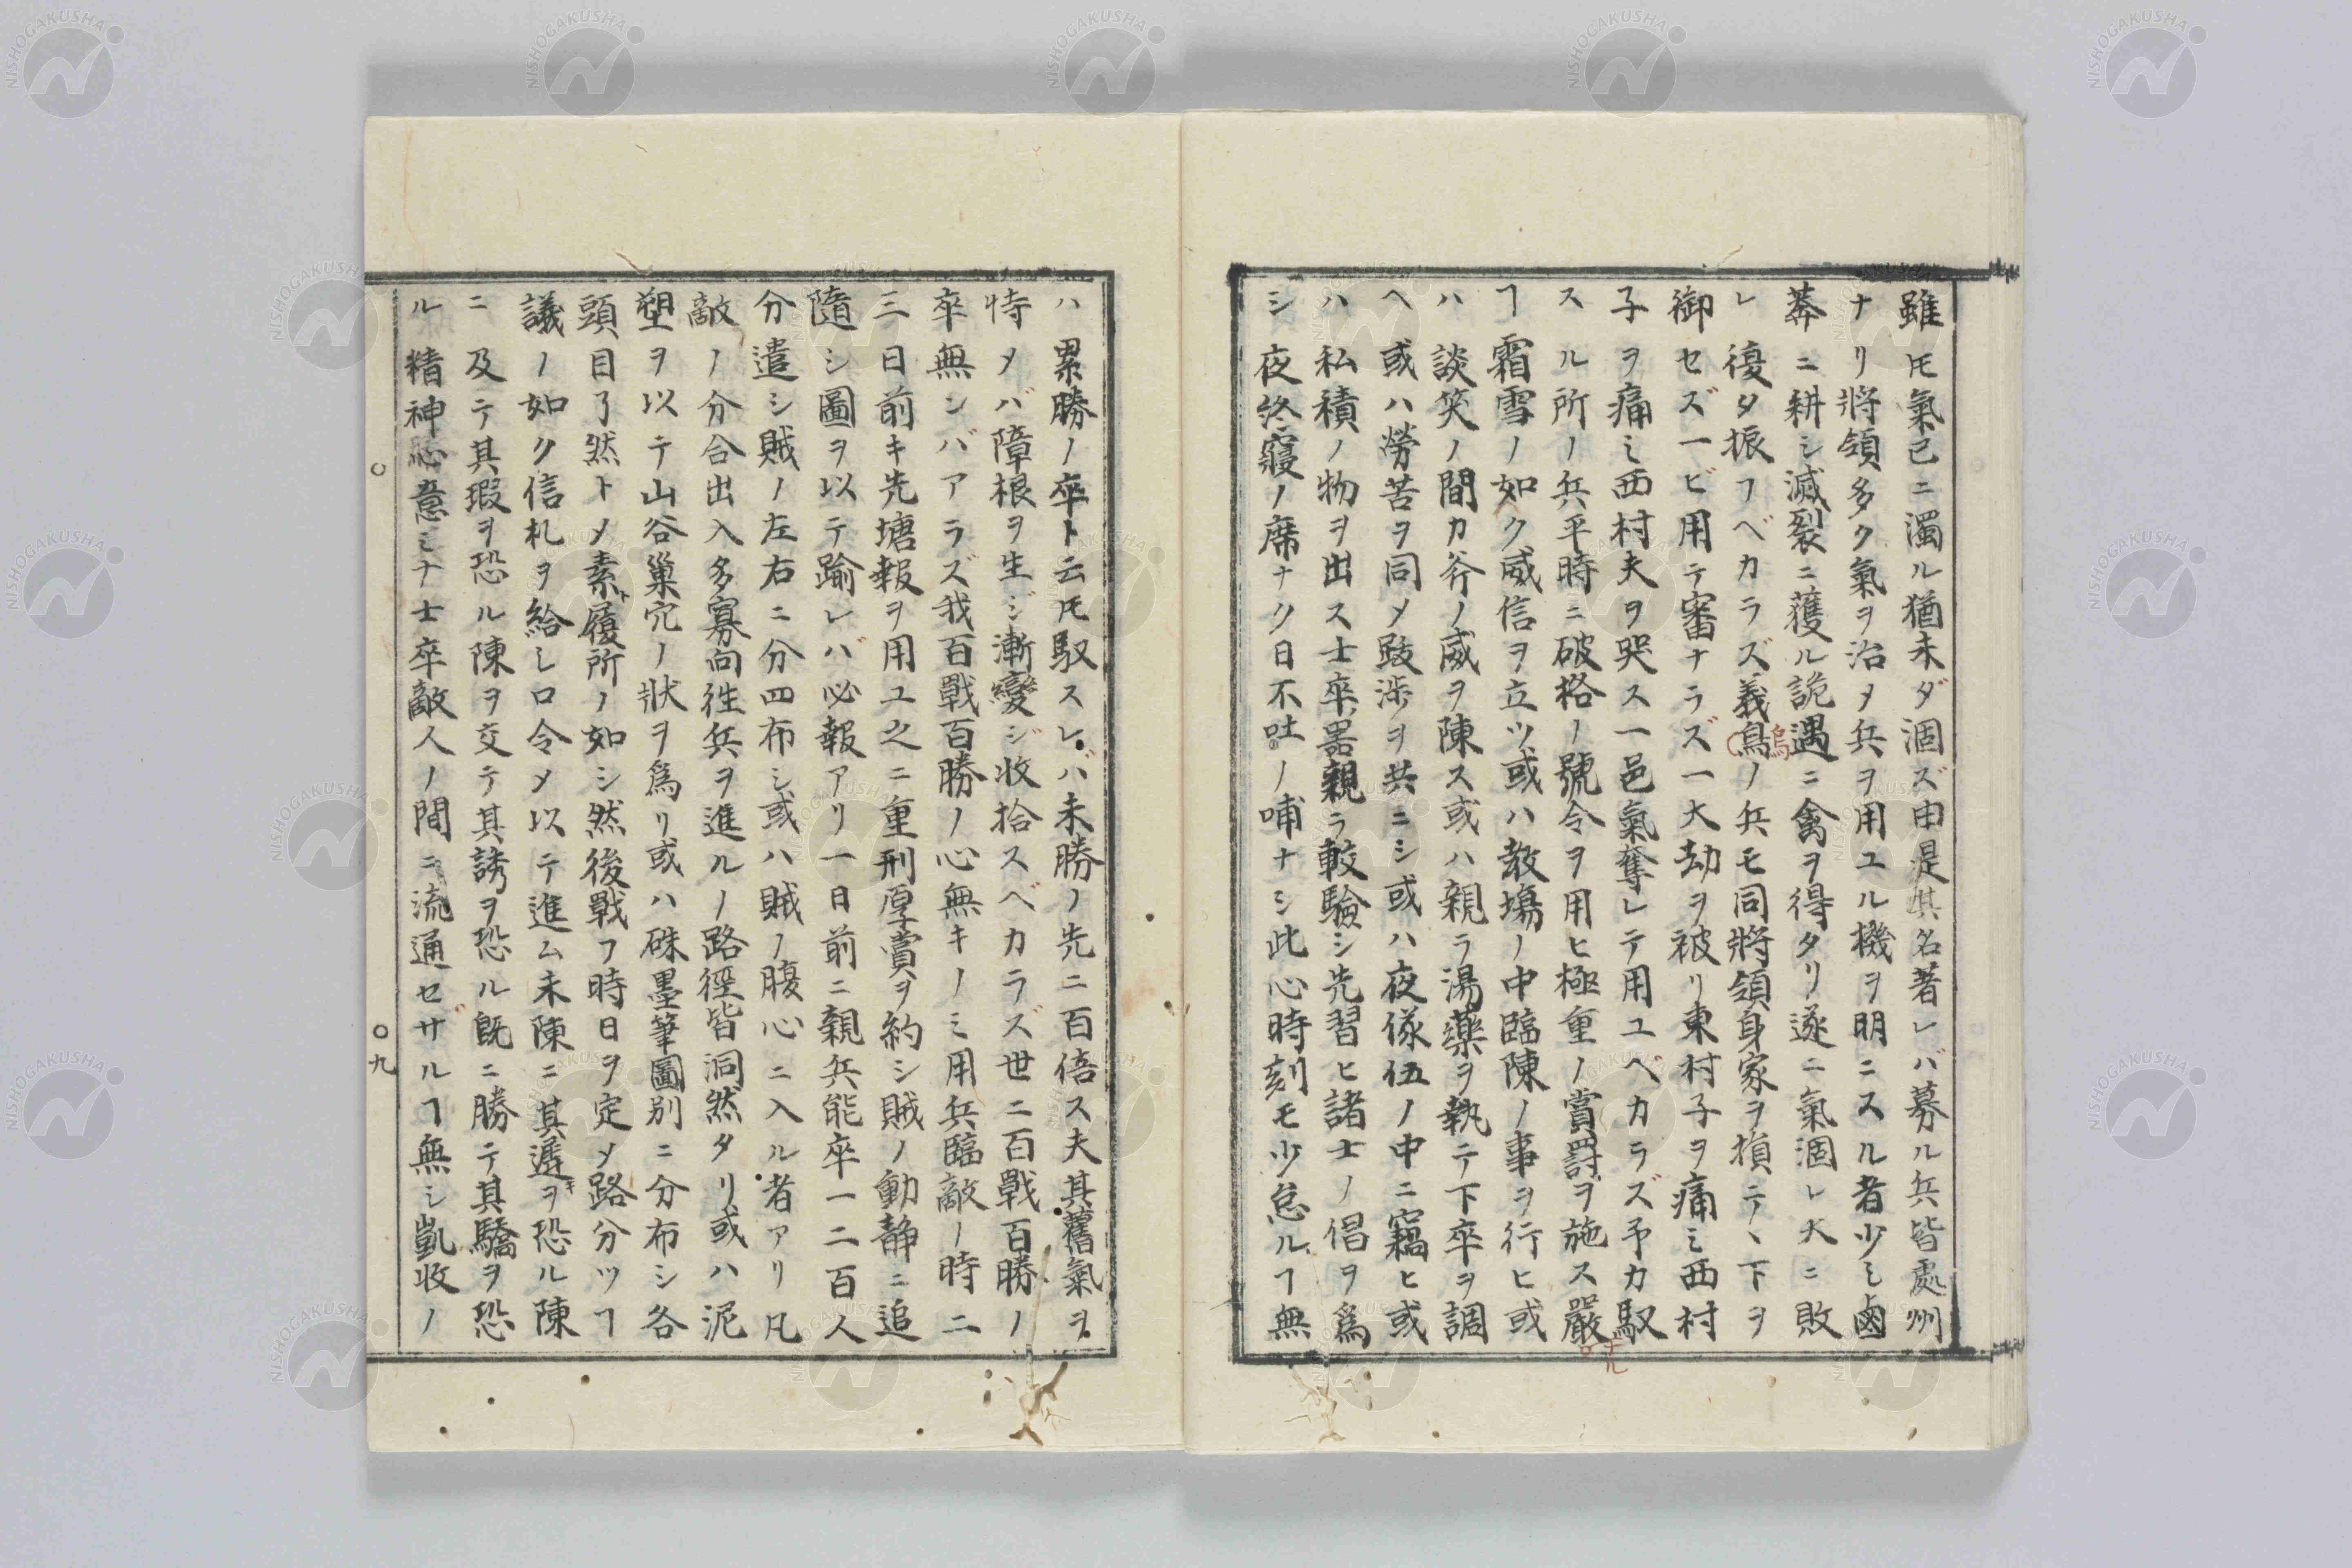 雖𪜈氣已ニ濁ル猶未ダ涸ズ由是其名著レバ募ル兵皆處州
ナリ將領多ク氣ヲ治メ兵ヲ用ユル機ヲ明ニスル者少シ鹵
莽ニ耕シ滅裂ニ獲ル詭遇ニ禽ヲ得タリ遂ニ氣涸レ大ニ敗
レ復タ振フベカラズ義鳥ノ兵モ同將領身家ヲ損テヽ下ヲ
烏
御セズ一ビ用テ審ナラズ一大劫ヲ被リ東村子ヲ痛ミ西村
子ヲ痛ミ西村夫ヲ哭ス一邑氣奪レテ用ユベカラズ予カ馭
スル所ノ兵平時ニ破格ノ號令ヲ用ヒ極重ノ賞罰ヲ施ス嚴
ナル
ヿ霜雪ノ如ク威信ヲ立ツ或ハ教塲ノ中臨陳ノ事ヲ行ヒ或
ハ談笑ノ間カ斧ノ威ヲ陳ス或ハ親ラ湯藥ヲ執テ下卒ヲ調
ヘ或ハ勞苦ヲ同メ跋渉ヲ共ニシ或ハ夜𠋣伍ノ中ニ竊ヒ或
ハ私積ノ物ヲ出ス士卒噐親ラ較驗シ先習ヒ諸士ノ倡ヲ爲
シ夜終寢ノ席ナク日不吐ノ哺ナシ此心時刻モ少怠ルヿ無
ハ累勝ノ卒ト云𪜈馭スレバ未勝ノ先ニ百倍ス夫其舊氣ヲ
恃メバ障根ヲ生ジ漸變ジ收拾スベカラズ世ニ百戰百勝ノ
卒無シバアラズ我百戰百勝ノ心無キノミ用兵臨敵ノ時二
三日前キ先塘報ヲ用ユ之ニ重刑厚賞ヲ約シ賊ノ動靜ニ追
隨シ圖ヲ以テ踰レバ必報アリ一日前ニ親兵能卒一二百人
分遣シ賊ノ左右ニ分四布シ或ハ賊ノ腹心ニ入ル者アリ凡
敵ノ分合出入多寡向徃兵ヲ進ルノ路徑皆洞然タリ或ハ泥
塑ヲ以テ山谷巢穴ノ狀ヲ爲リ或ハ硃墨筆圖別ニ分布シ各
頭目了然トメ素ト履所ノ如シ然後戰フ時日ヲ定メ路分ツヿ
議ノ如ク信札ヲ給シ口令メ以テ進ム未陳ニ其遽キヲ恐ル陳
ニ及テ其瑕ヲ恐ル陳ヲ交テ其誘ヲ恐ル旣ニ勝テ其驕ヲ恐
ル精神心意ミナ士卒敵人ノ間ニ流通セザルヿ無シ凱收ノ
〇
〇九